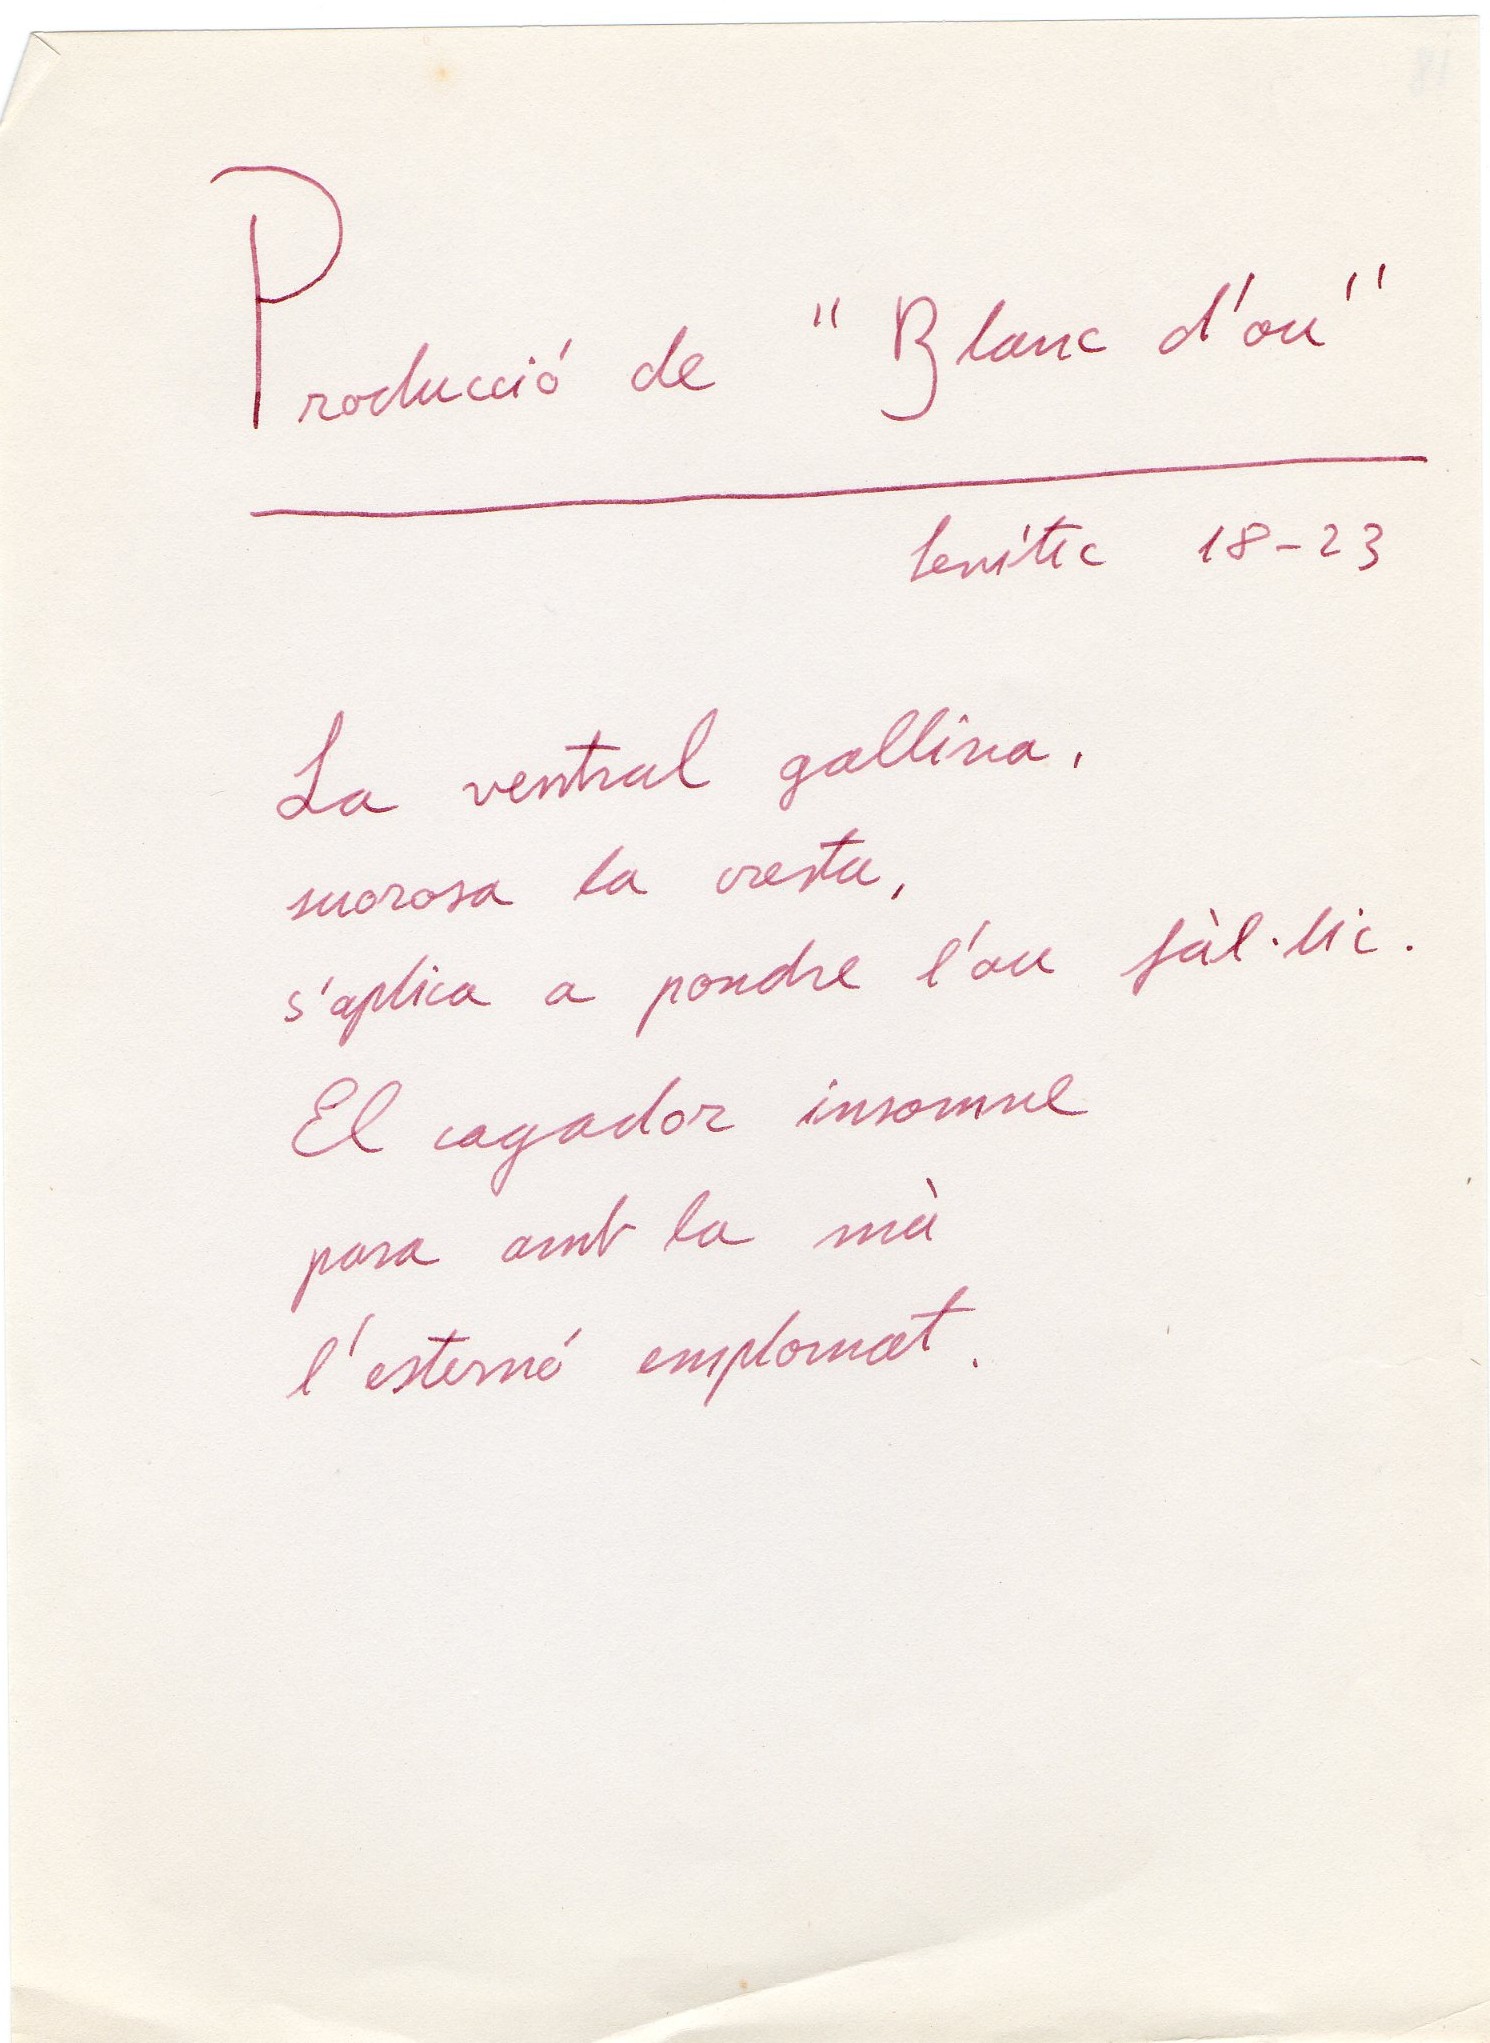 Producció de "Blanc d'ou"
Levític 18-23
La ventral gallina,
sucrosa la cresta,
s'aplica a pondre l'ou fàl·lic.
El cagador insomne
para amb la mà
l'esterné emplomat.